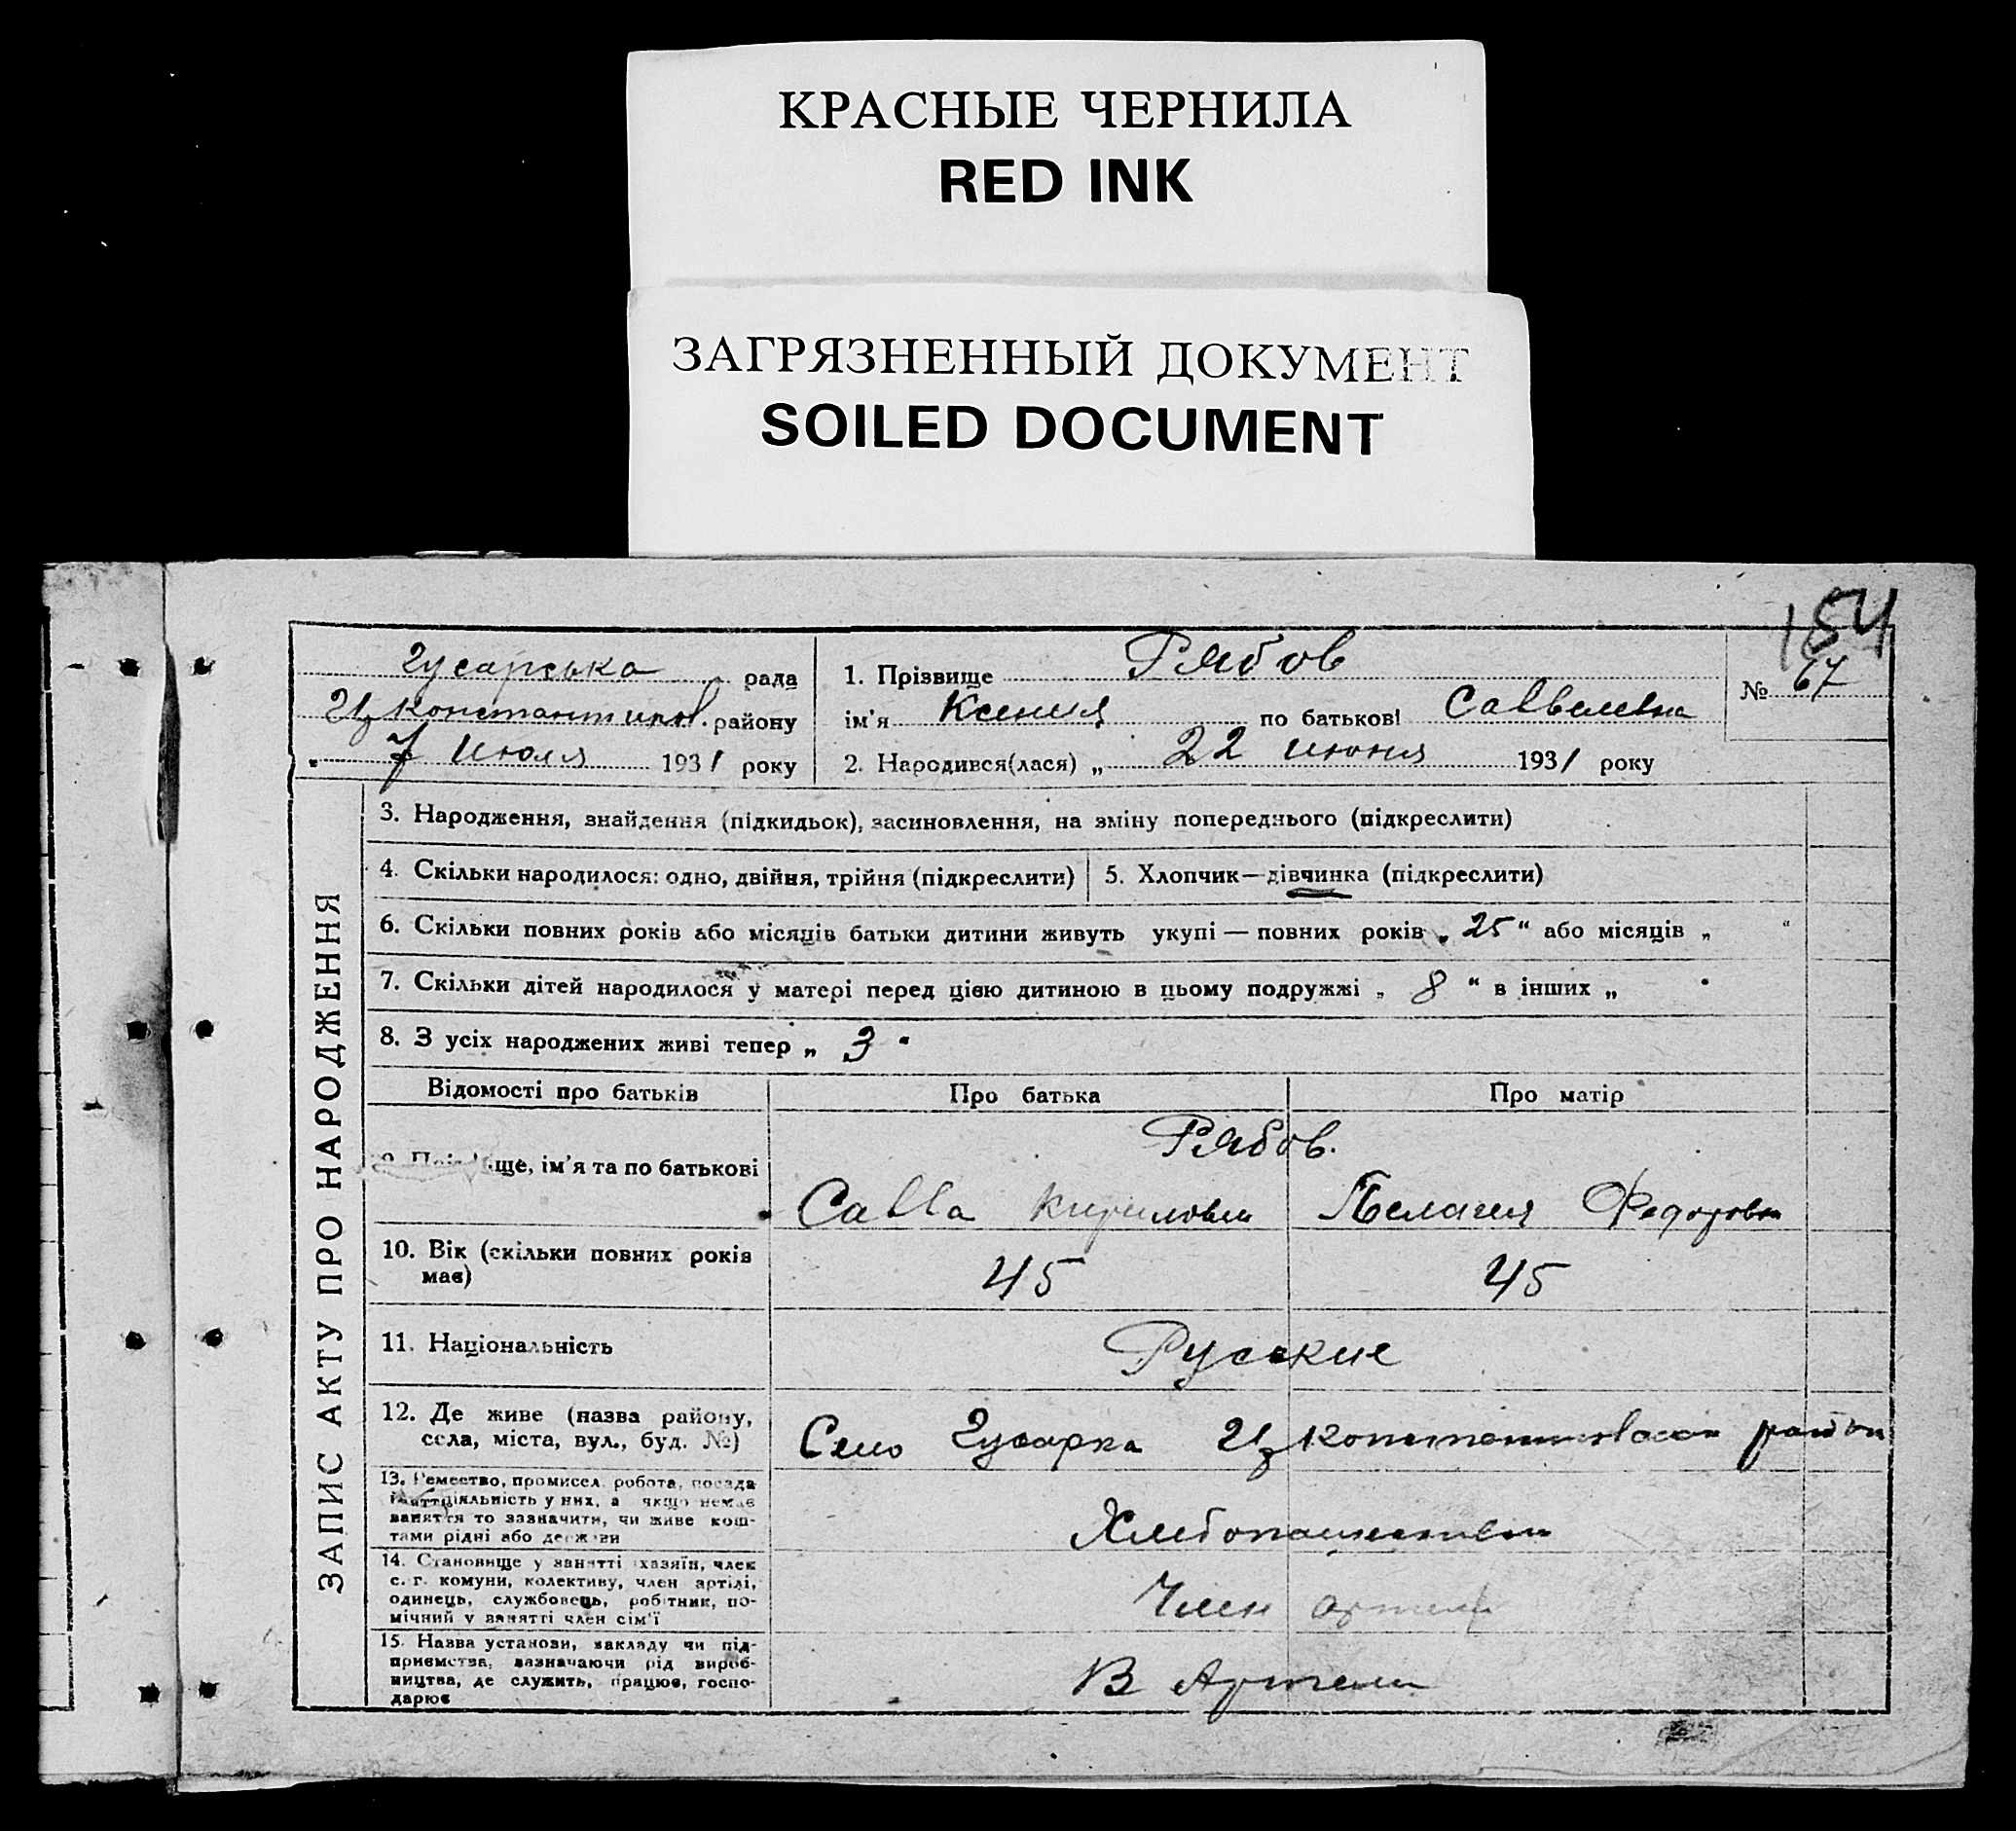 КРАСНЫЕ ЧЕРНИЛА
RED INK
ЗАГРЯЗНЕННЫЙ ДОКУМЕНТ
SOILED DOCUMENT
154
Гусарська рада
Цконстантинов. району
7 июля 1931 року
1. Прізвище Рябов
ім'я Ксения по батькові Савельевна
№ 67
2. Народився(лася) „ 22 июня 1931 року
ЗАПИС АКТУ ПРО НАРОДЖЕННЯ
3. Народження, знайдення (підкидьок), засиновлення, на зміну попереднього (підкреслити)
4. Скільки народилося: одно, двійня, трійня (підкреслити)
5. Хлопчик—дівчинка (підкреслити)
6. Скільки повних років або місяців батьки дитини живуть укупі — повних років „ 25 “ або місяців „ “
7. Скільки дітей народилося у матері перед цією дитиною в цьому подружжі „ 8 “ в інших „
8. З усіх народжених живі тепер „ 3 “
Відомості про батьків Про батька Про матір
Рябов.
ще, ім'я та по батькові
Савва Кирилович Пелагея Федоровна
10. Вік (скільки повних років має)
45 45
11. Національність Русские
12. Де живе (назва району,
села, міста, вул., буд. №) Село Гусарка район
13. Ремество, промиссл. робота, посада
і спеціяльність у них, а якщо немає
заняття то зазначити, чи живе кош-
тами рідні або держави
Хлебопашество
14. Становище у занятті хазяїн, член
с. г. комуни, колективу, член артілі,
одинець, службовець, робітник, по-
мічний у занятті член сім'ї
Член артели
15. Назва установи, закладу чи під-
приємства, зазначаючи рід вироб-
ництва, де служить, працює, госпо-
дарює
В Артели